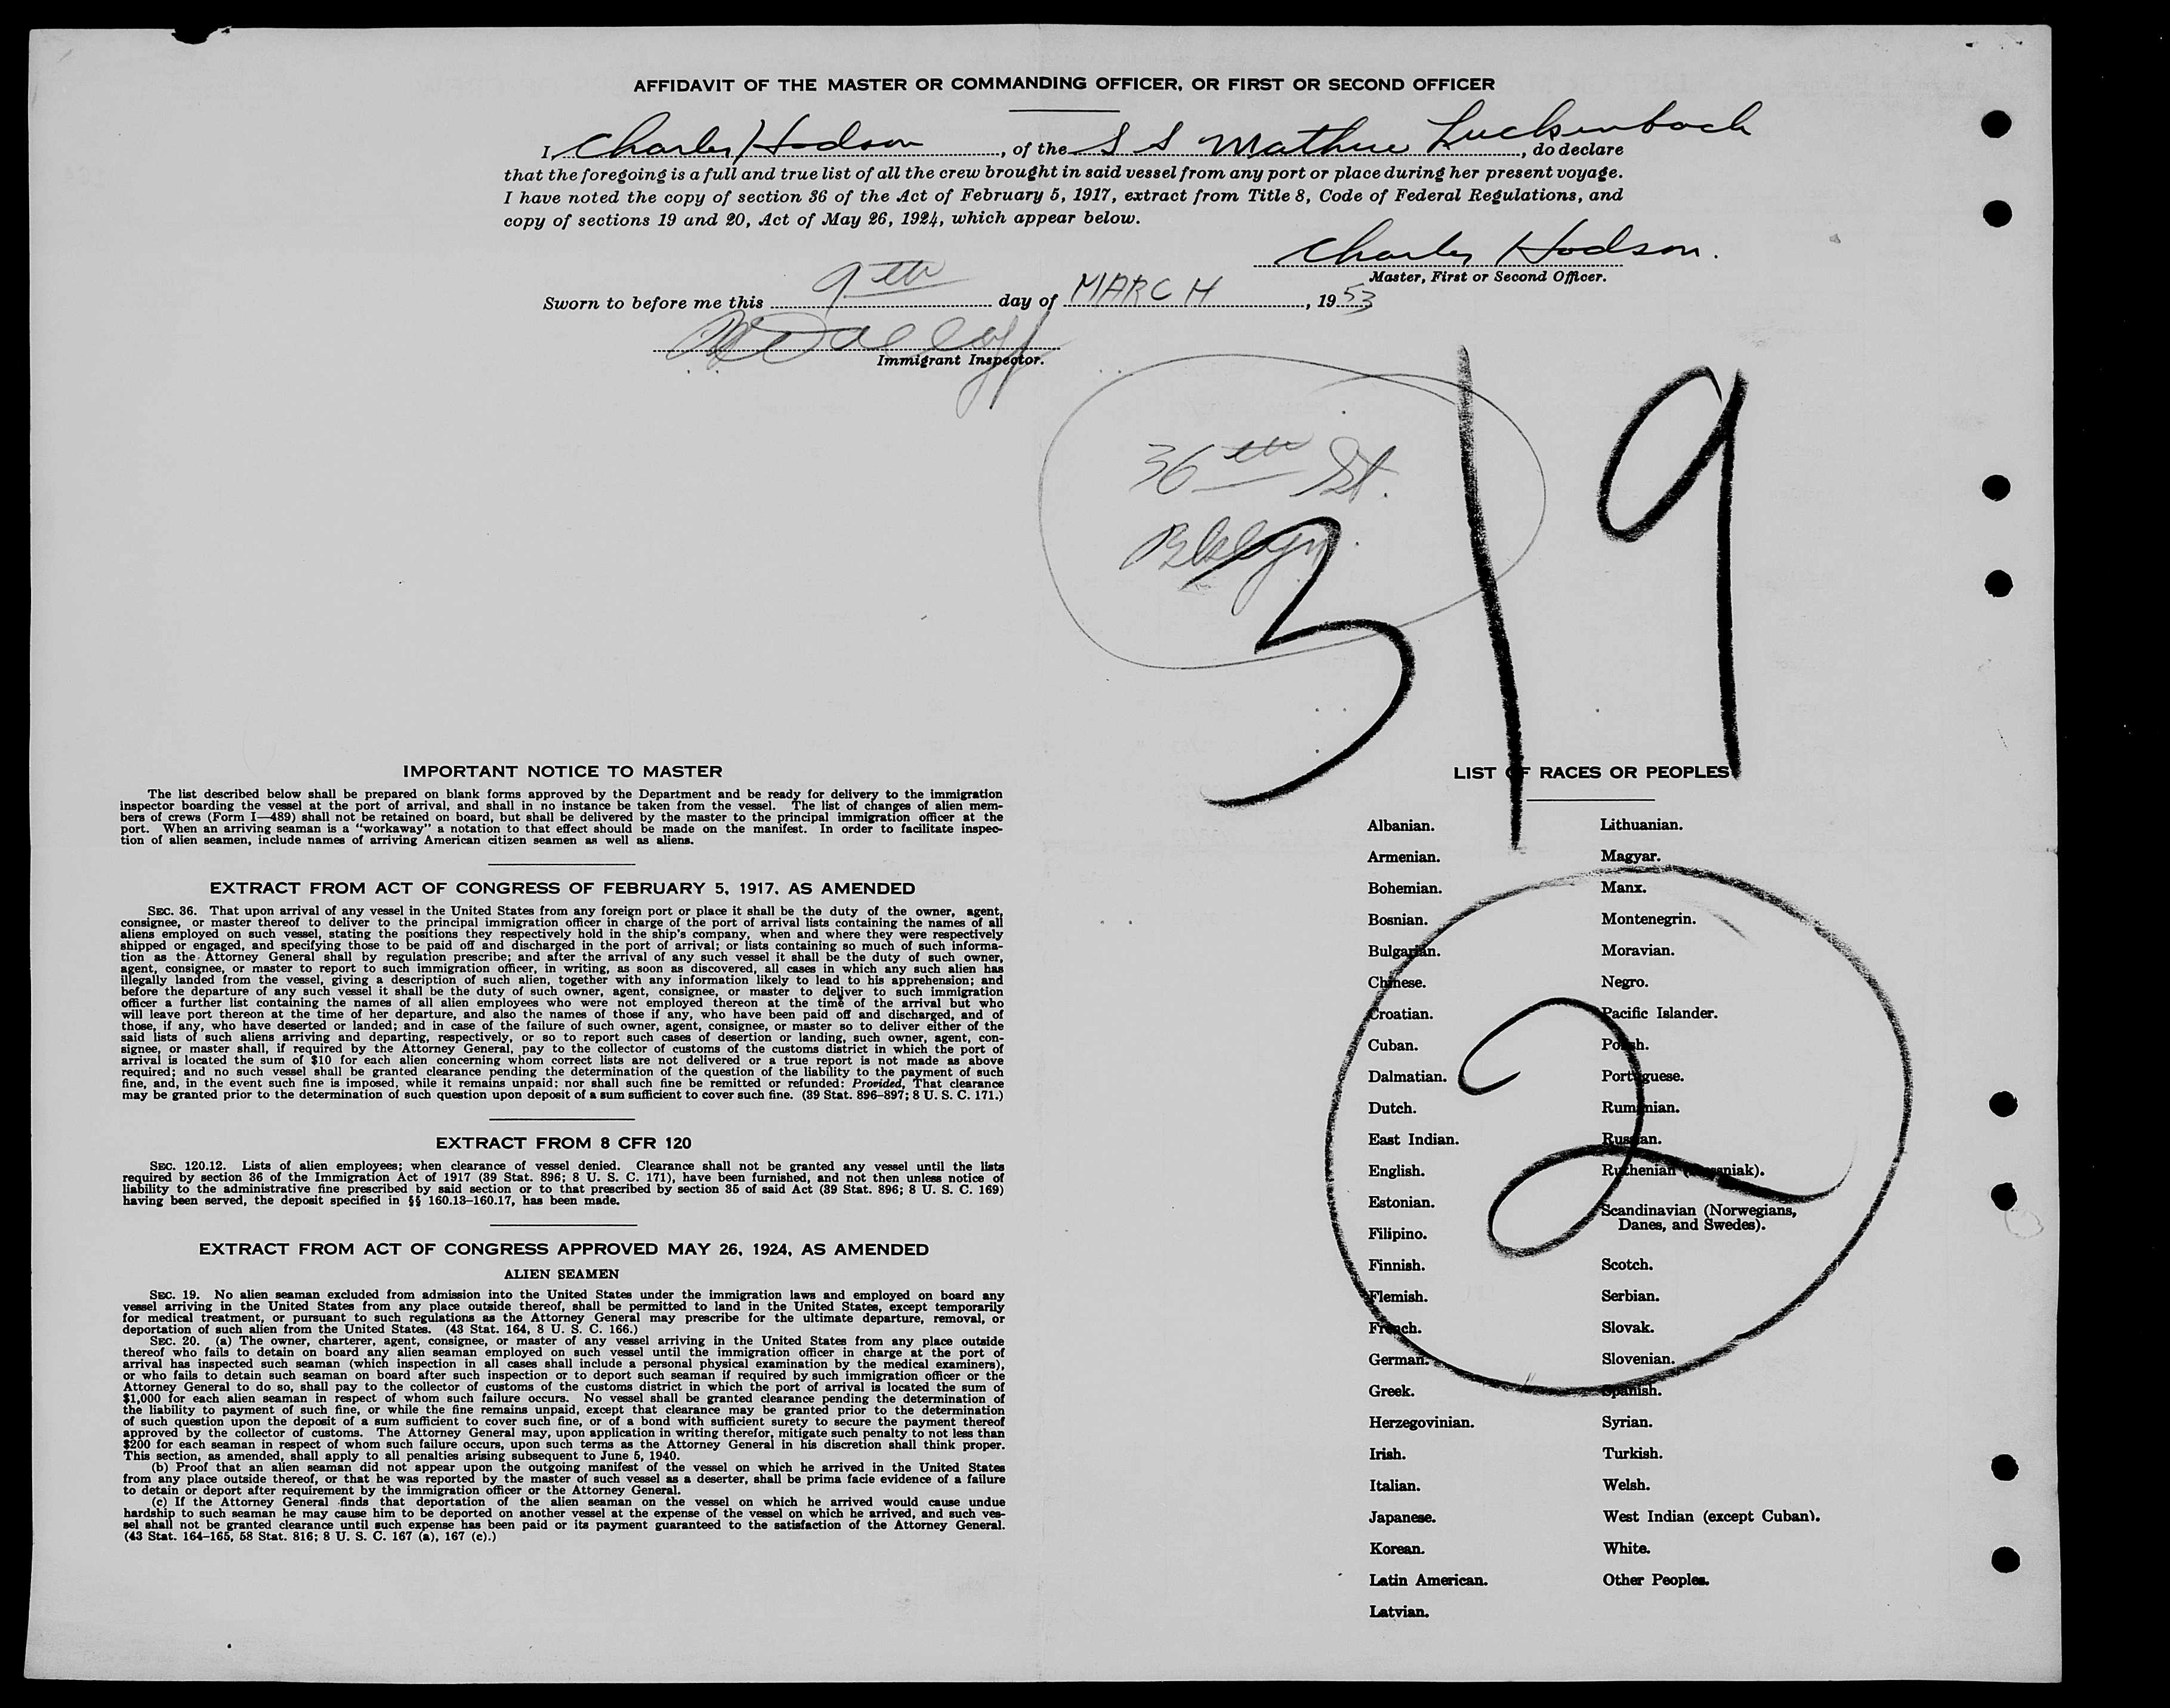 AFFIDAVIT OF THE MASTER OR COMMANDING OFFICER, OR FIRST OR SECOND OFFICER
I Charles Hodson, of the S S Mathew Luckenbach, do declare
that the foregoing is a full and true list of all the crew brought in said vessel from any port or place during her present voyage.
I have noted the copy of section 36 of the Act of February 5, 1917, extract from Title 8, Code of Federal Regulations, and
copy of sections 19 and 20, Act of May 26, 1924, which appear below.
Charles Hodson.
Master, First or Second Officer.
Sworn to before me this 9th day of MARCH, 1953
Immigrant Inspector.
36th St.
Bklyn.
319
IMPORTANT NOTICE TO MASTER
The list described below shall be prepared on blank forms approved by the Department and be ready for delivery to the immigration
inspector boarding the vessel at the port of arrival, and shall in no instance be taken from the vessel. The list of changes of alien mem-
bers of crews (Form I—489) shall not be retained on board, but shall be delivered by the master to the principal immigration officer at the
port. When an arriving seaman is a "workaway" a notation to that effect should be made on the manifest. In order to facilitate inspec-
tion of alien seamen, include names of arriving American citizen seamen as well as aliens.
EXTRACT FROM ACT OF CONGRESS OF FEBRUARY 5, 1917, AS AMENDED
SEC. 36. That upon arrival of any vessel in the United States from any foreign port or place it shall be the duty of the owner, agent,
consignee, or master thereof to deliver to the principal immigration officer in charge of the port of arrival lists containing the names of all
aliens employed on such vessel, stating the positions they respectively hold in the ship's company, when and where they were respectively
shipped or engaged, and specifying those to be paid off and discharged in the port of arrival; or lists containing so much of such informa-
tion as the Attorney General shall by regulation prescribe; and after the arrival of any such vessel it shall be the duty of such owner,
agent, consignee, or master to report to such immigration officer, in writing, as soon as discovered, all cases in which any such alien has
illegally landed from the vessel, giving a description of such alien, together with any information likely to lead to his apprehension; and
before the departure of any such vessel it shall be the duty of such owner, agent, consignee, or master to deliver to such immigration
officer a further list containing the names of all alien employees who were not employed thereon at the time of the arrival but who
will leave port thereon at the time of her departure, and also the names of those if any, who have been paid off and discharged, and of
those, if any, who have deserted or landed; and in case of the failure of such owner, agent, consignee, or master so to deliver either of the
said lists of such aliens arriving and departing, respectively, or so to report such cases of desertion or landing, such owner, agent, con-
signee, or master shall, if required by the Attorney General, pay to the collector of customs of the customs district in which the port of
arrival is located the sum of $10 for each alien concerning whom correct lists are not delivered or a true report is not made as above
required; and no such vessel shall be granted clearance pending the determination of the question of the liability to the payment of such
fine, and, in the event such fine is imposed, while it remains unpaid; nor shall such fine be remitted or refunded: Provided, That clearance
may be granted prior to the determination of such question upon deposit of a sum sufficient to cover such fine. (39 Stat. 896–897; 8 U. S. C. 171.)
EXTRACT FROM 8 CFR 120
SEC. 120.12. Lists of alien employees; when clearance of vessel denied. Clearance shall not be granted any vessel until the lists
required by section 36 of the Immigration Act of 1917 (39 Stat. 896; 8 U. S. C. 171), have been furnished, and not then unless notice of
liability to the administrative fine prescribed by said section or to that prescribed by section 35 of said Act (39 Stat. 896; 8 U. S. C. 169)
having been served, the deposit specified in §§ 160.13–160.17, has been made.
EXTRACT FROM ACT OF CONGRESS APPROVED MAY 26, 1924, AS AMENDED
ALIEN SEAMEN
SEC. 19. No alien seaman excluded from admission into the United States under the immigration laws and employed on board any
vessel arriving in the United States from any place outside thereof, shall be permitted to land in the United States, except temporarily
for medical treatment, or pursuant to such regulations as the Attorney General may prescribe for the ultimate departure, removal, or
deportation of such alien from the United States. (43 Stat. 164, 8 U. S. C. 166.)
SEC. 20. (a) The owner, charterer, agent, consignee, or master of any vessel arriving in the United States from any place outside
thereof who fails to detain on board any alien seaman employed on such vessel until the immigration officer in charge at the port of
arrival has inspected such seaman (which inspection in all cases shall include a personal physical examination by the medical examiners),
or who fails to detain such seaman on board after such inspection or to deport such seaman if required by such immigration officer or the
Attorney General to do so, shall pay to the collector of customs of the customs district in which the port of arrival is located the sum of
$1,000 for each alien seaman in respect of whom such failure occurs. No vessel shall be granted clearance pending the determination of
the liability to payment of such fine, or while the fine remains unpaid, except that clearance may be granted prior to the determination
of such question upon the deposit of a sum sufficient to cover such fine, or of a bond with sufficient surety to secure the payment thereof
approved by the collector of customs. The Attorney General may, upon application in writing therefor, mitigate such penalty to not less than
$200 for each seaman in respect of whom such failure occurs, upon such terms as the Attorney General in his discretion shall think proper.
This section, as amended, shall apply to all penalties arising subsequent to June 5, 1940.
(b) Proof that an alien seaman did not appear upon the outgoing manifest of the vessel on which he arrived in the United States
from any place outside thereof, or that he was reported by the master of such vessel as a deserter, shall be prima facie evidence of a failure
to detain or deport after requirement by the immigration officer or the Attorney General.
(c) If the Attorney General finds that deportation of the alien seaman on the vessel on which he arrived would cause undue
hardship to such seaman he may cause him to be deported on another vessel at the expense of the vessel on which he arrived, and such ves-
sel shall not be granted clearance until such expense has been paid or its payment guaranteed to the satisfaction of the Attorney General.
(43 Stat. 164–165, 58 Stat. 816; 8 U. S. C. 167 (a), 167 (c).)
LIST OF RACES OR PEOPLES
Albanian.
Armenian.
Bohemian.
Bosnian.
Bulgarian.
Chinese.
Croatian.
Cuban.
Dalmatian.
Dutch.
East Indian.
English.
Estonian.
Filipino.
Finnish.
Flemish.
French.
German.
Greek.
Herzegovinian.
Irish.
Italian.
Japanese.
Korean.
Latin American.
Latvian.
Lithuanian.
Magyar.
Manx.
Montenegrin.
Moravian.
Negro.
Pacific Islander.
Polish.
Portuguese.
Rumanian.
Russian.
Ruthenian (Russniak).
Scandinavian (Norwegians,
Danes, and Swedes).
Scotch.
Serbian.
Slovak.
Slovenian.
Spanish.
Syrian.
Turkish.
Welsh.
West Indian (except Cuban).
White.
Other Peoples.
2